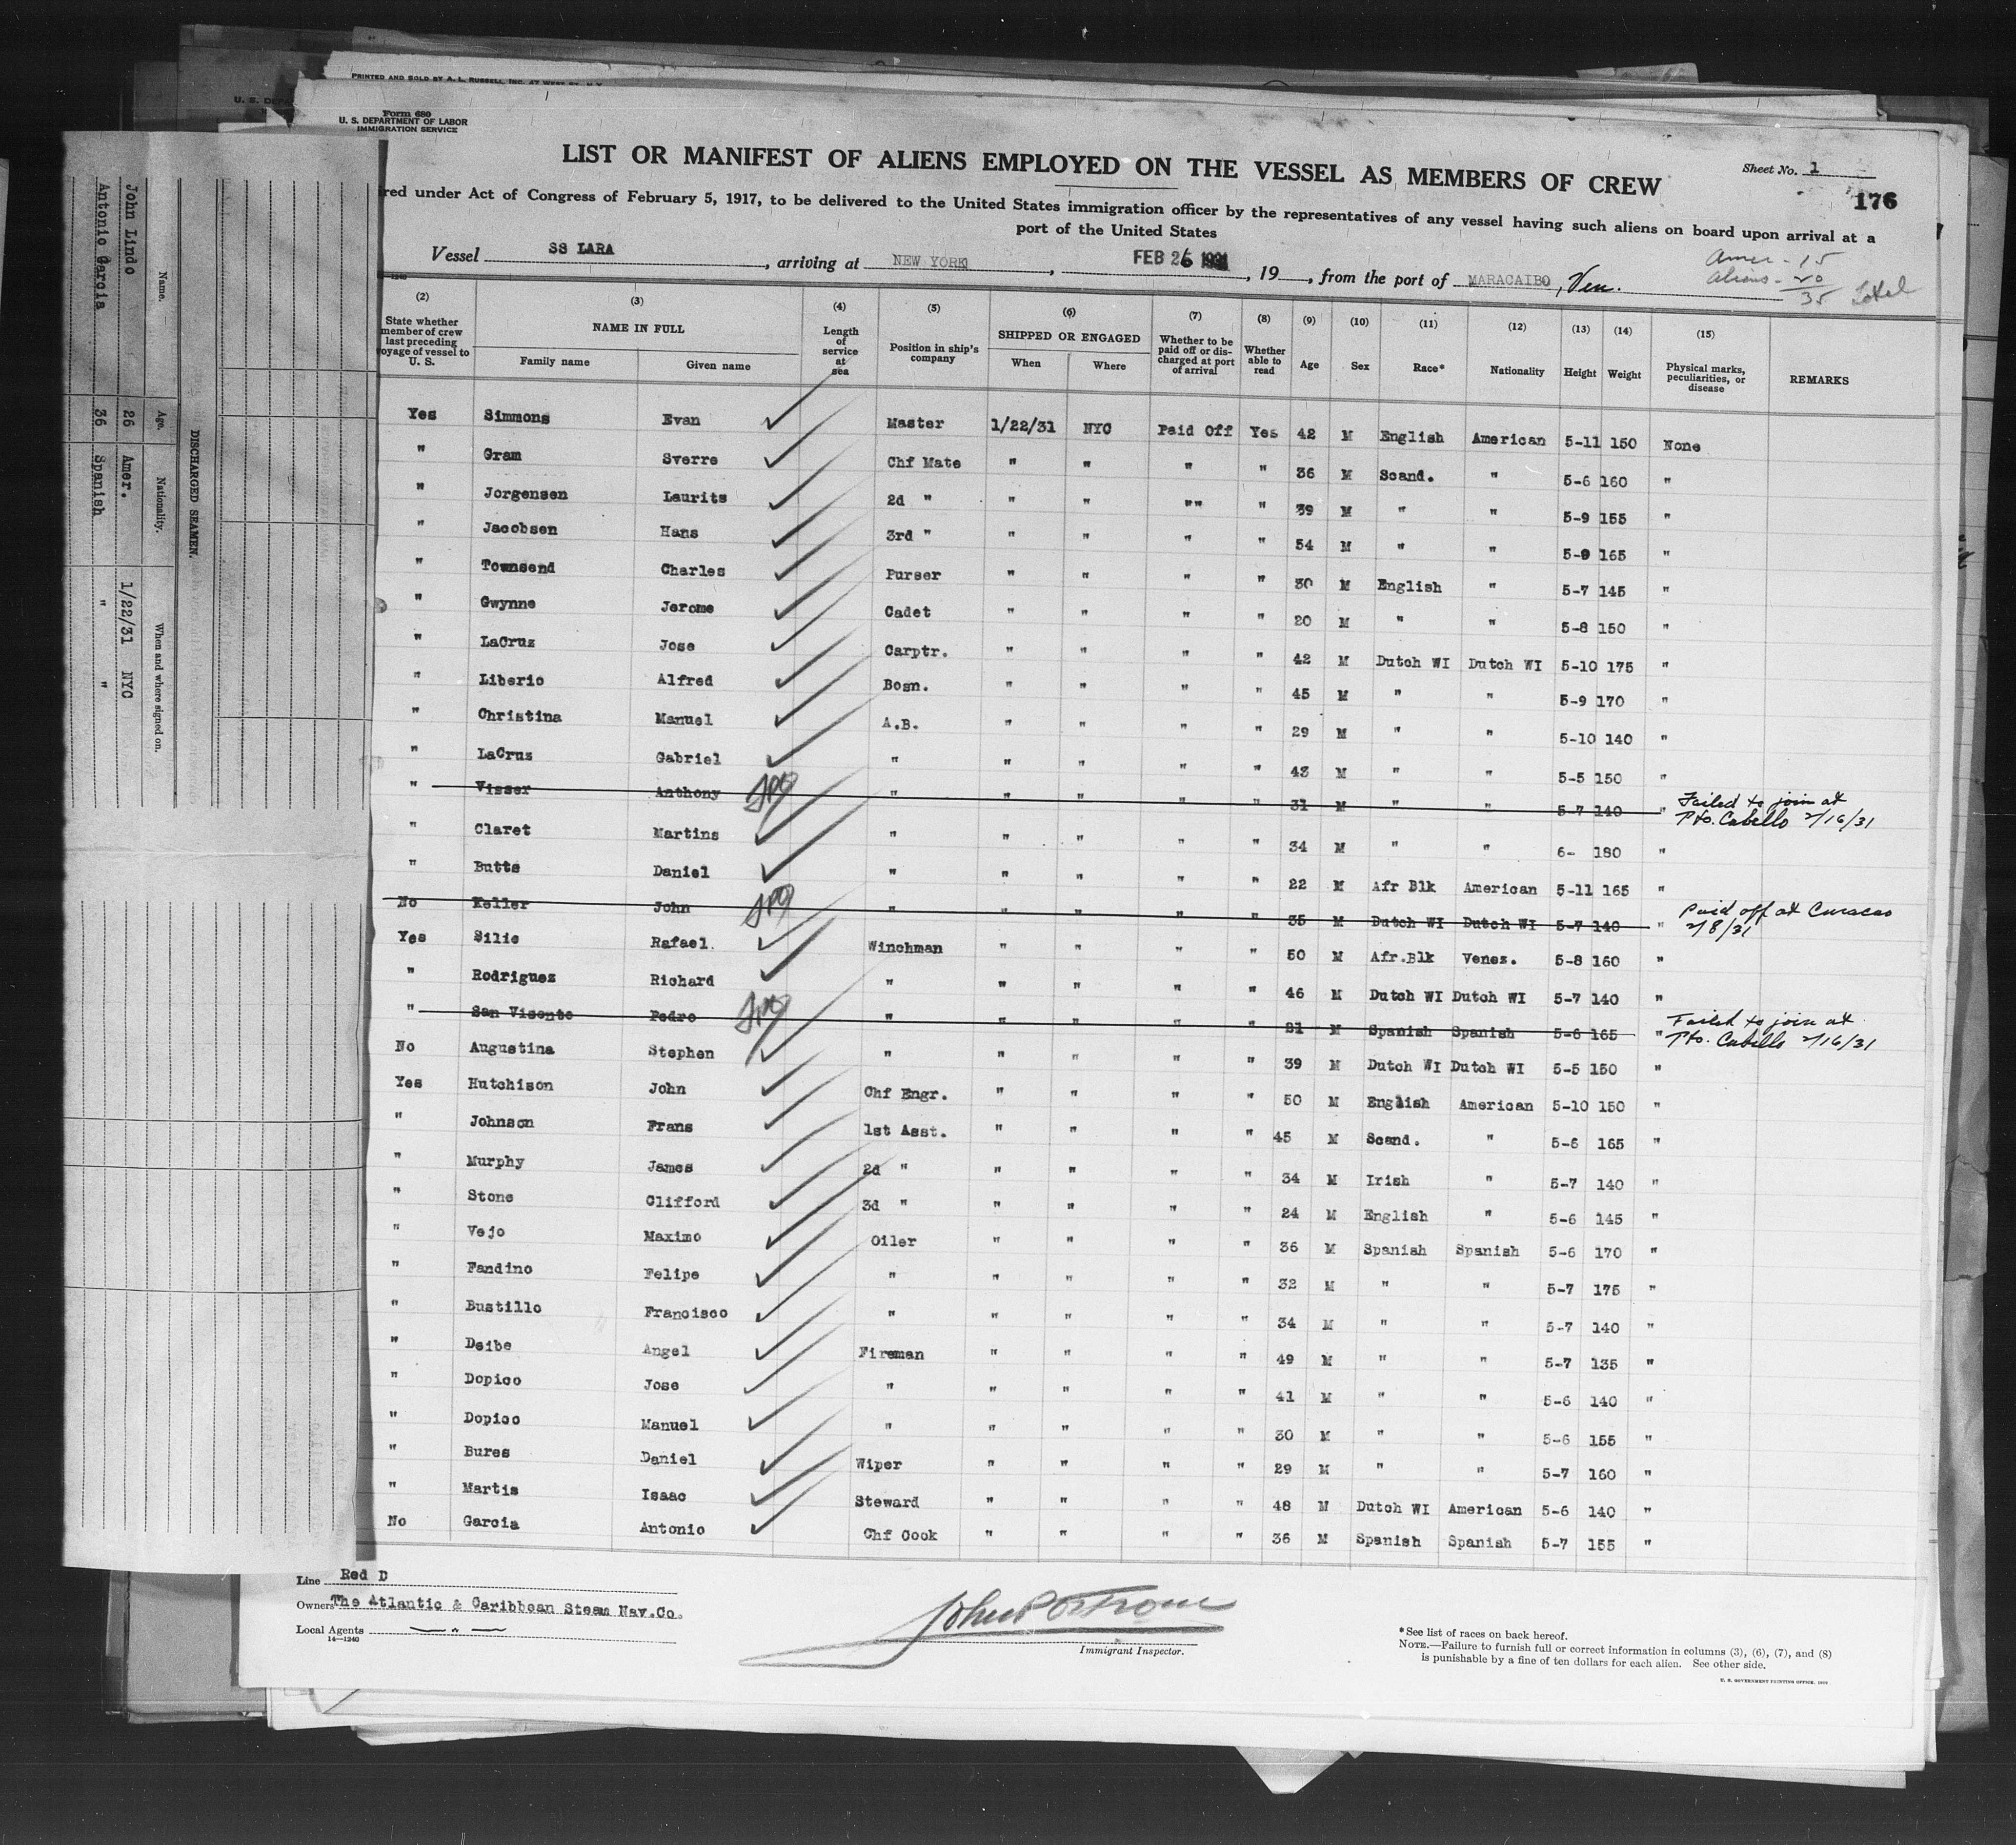 PRINTED AND SOLD BY A. L. RUSSELL, INC. 47 WEST ST. N.Y.
Form 680
U. S. DEPARTMENT OF LABOR
IMMIGRATION SERVICE
LIST OR MANIFEST OF ALIENS EMPLOYED ON THE VESSEL AS MEMBERS OF CREW
Sheet No. 1
176
red under Act of Congress of February 5, 1917, to be delivered to the United States immigration officer by the representatives of any vessel having such aliens on board upon arrival at a
port of the United States
Vessel SS LARA, arriving at NEW YORK, FEB 26 1931, 19, from the port of MARACAIBO, Ven.
Amer - 15
Aliens - 20
35 Total
(2) State whether member of crew last preceding voyage of vessel to U. S.
(3) NAME IN FULL Family name Given name
(4) Length of service at sea
(5) Position in ship's company
(6) SHIPPED OR ENGAGED When Where
(7) Whether to be paid off or discharged at port of arrival
(8) Whether able to read
(9) Age
(10) Sex
(11) Race*
(12) Nationality
(13) Height
(14) Weight
(15) Physical marks, peculiarities, or disease
REMARKS
Yes Simmons Evan Master 1/22/31 NYC Paid Off Yes 42 M English American 5-11 150 None
" Gram Sverre Chf Mate " " " " 36 M Scand. " 5-6 160 "
" Jorgensen Laurits 2d " " " "" " 39 M " " 5-9 155 "
" Jacobsen Hans 3rd " " " " " 54 M " " 5-9 165 "
" Townsend Charles Purser " " " " 30 M English " 5-7 145 "
" Gwynne Jerome Cadet " " " " 20 M " " 5-8 150 "
" LaCruz Jose Carptr. " " " " 42 M Dutch WI Dutch WI 5-10 175 "
" Liberio Alfred Bosn. " " " " 45 M " " 5-9 170 "
" Christina Manuel A.B. " " " " 29 M " " 5-10 140 "
" LaCruz Gabriel " " " " " 43 M " " 5-5 150 "
" Visser Anthony " " " " " 31 M " " 5-7 140 " Failed to join at Pto. Cabello 2/16/31
" Claret Martins " " " " " 34 M " " 6- 180 "
" Butts Daniel " " " " " 22 M Afr Blk American 5-11 165 "
No Keller John " " " " " 35 M Dutch WI Dutch WI 5-7 140 " Paid off at Curacao 2/8/31
Yes Silie Rafael Winchman " " " " 50 M Afr.Blk Venez. 5-8 160 "
" Rodriguez Richard " " " " " 46 M Dutch WI Dutch WI 5-7 140 "
" San Vicente Pedro " " " " " 21 M Spanish Spanish 5-6 165 " Failed to join at Pto. Cabello 2/16/31
No Augustina Stephen " " " " " 39 M Dutch WI Dutch WI 5-5 150 "
Yes Hutchison John Chf Engr. " " " " 50 M English American 5-10 150 "
" Johnson Frans 1st Asst. " " " " 45 M Scand. " 5-6 165 "
" Murphy James 2d " " " " " 34 M Irish " 5-7 140 "
" Stone Clifford 3d " " " " " 24 M English " 5-6 145 "
" Vejo Maximo Oiler " " " " 36 M Spanish Spanish 5-6 170 "
" Fandino Felipe " " " " " 32 M " " 5-7 175 "
" Bustillo Francisco " " " " " 34 M " " 5-7 140 "
" Deibe Angel Fireman " " " " 49 M " " 5-7 135 "
" Dopico Jose " " " " " 41 M " " 5-6 140 "
" Dopico Manuel " " " " " 30 M " " 5-6 155 "
" Bures Daniel Wiper " " " " 29 M " " 5-7 160 "
" Martis Isaac Steward " " " " 48 M Dutch WI American 5-6 140 "
No Garcia Antonio Chf Cook " " " " 36 M Spanish Spanish 5-7 155 "
Line Red D
Owners The Atlantic & Caribbean Steam Nav.Co.
Local Agents — " —
14—1240
Immigrant Inspector.
*See list of races on back hereof.
NOTE.—Failure to furnish full or correct information in columns (3), (6), (7), and (8)
is punishable by a fine of ten dollars for each alien. See other side.
DISCHARGED SEAMEN.
Name. Age. Nationality. When and where signed on.
John Lindo 26 Amer. 1/22/31 NYC
Antonio Garcia 36 Spanish " "